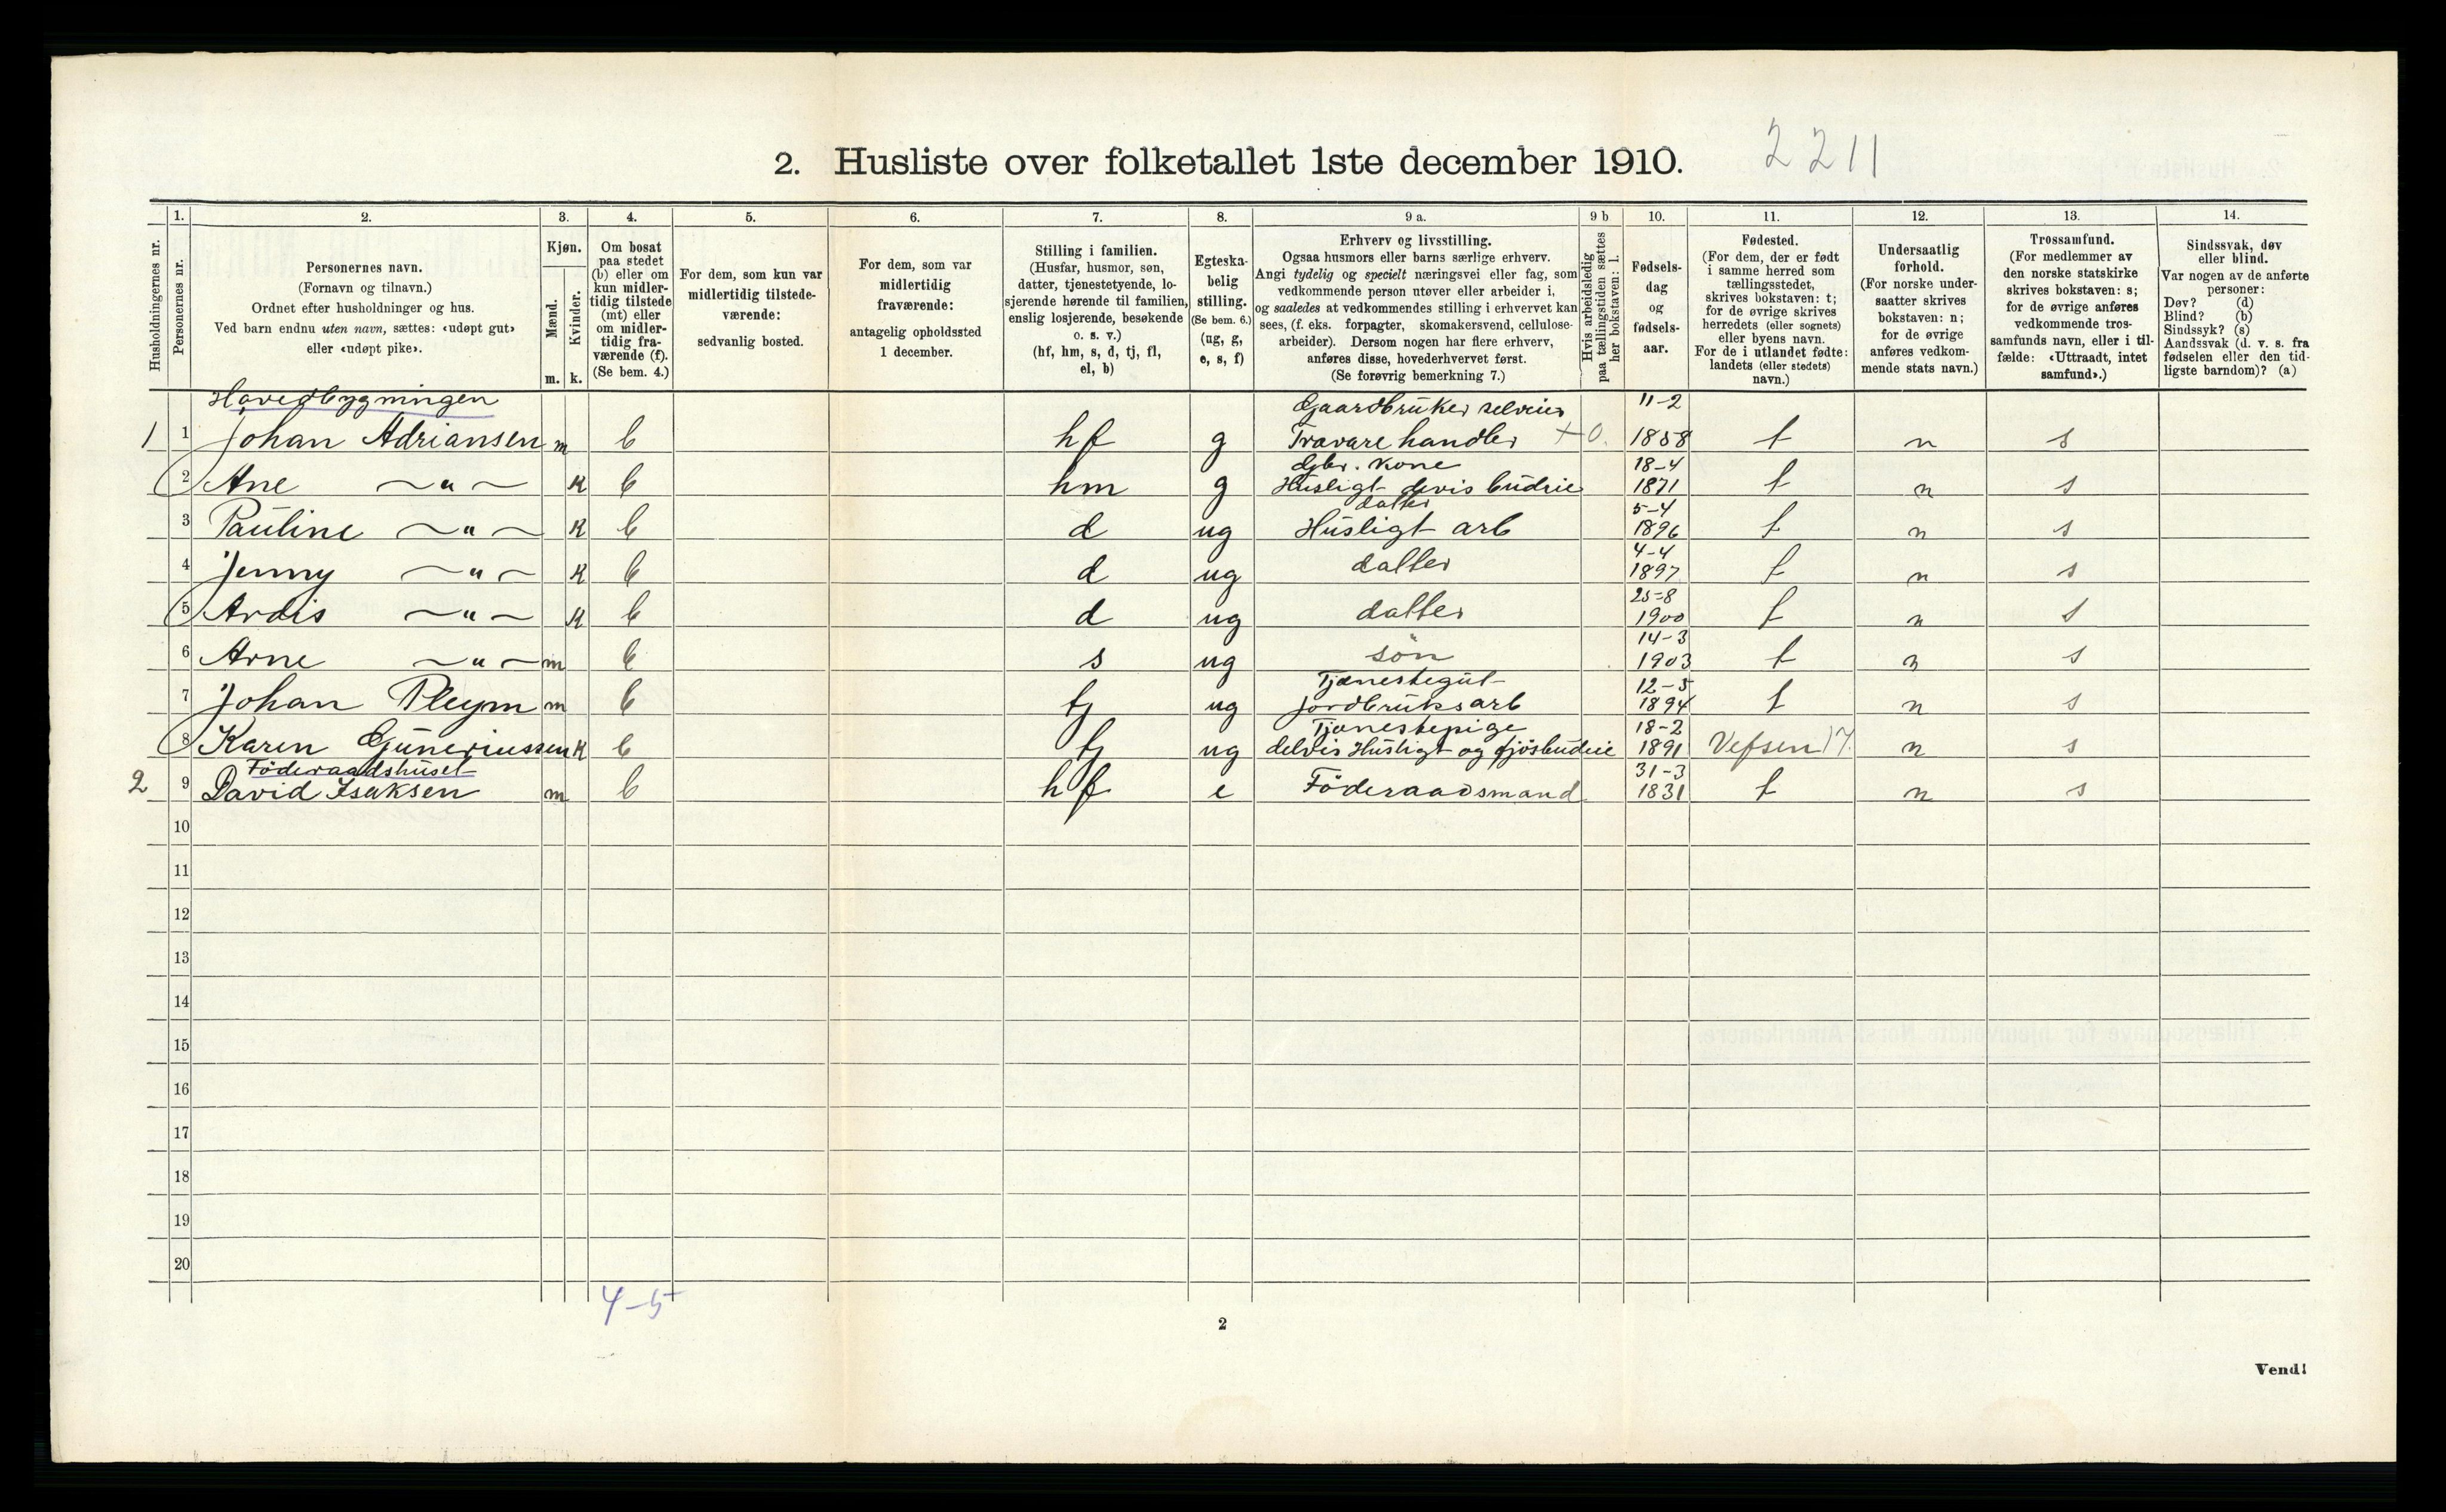 2. Husliste over folketallet 1ste december 1910. 2211
Husholdningernes nr.
1. 2. 3. 4. 5. 6. 7. 8. 9 a. 9 b 10. 11. 12. 13. 14.
Personernes nr.
Personernes navn.
(Fornavn og tilnavn.)
Ordnet efter husholdninger og hus.
Ved barn endnu uten navn, sættes: «udøpt gut»
eller «udøpt pike».
Kjøn.
Mænd.
Kvinder.
m. k.
Om bosat
paa stedet
(b) eller om
kun midler-
tidig tilstede
(mt) eller
om midler-
tidig fra-
værende (f).
(Se bem. 4.)
For dem, som kun var
midlertidig tilstede-
værende:
sedvanlig bosted.
For dem, som var
midlertidig
fraværende:
antagelig opholdssted
1 december.
Stilling i familien.
(Husfar, husmor, søn,
datter, tjenestetyende, lo-
sjerende hørende til familien,
enslig losjerende, besøkende
o. s. v.)
(hf, hm, s, d, tj, fl,
el, b)
Egteska-
belig
stilling.
(Se bem. 6.)
(ug, g,
e, s, f)
Erhverv og livsstilling.
Ogsaa husmors eller barns særlige erhverv.
Angi tydelig og specielt næringsvei eller fag, som
vedkommende person utøver eller arbeider i,
og saaledes at vedkommendes stilling i erhvervet kan
sees, (f. eks. forpagter, skomakersvend, cellulose-
arbeider). Dersom nogen har flere erhverv,
anføres disse, hovederhvervet først.
(Se forøvrig bemerkning 7.)
Hvis arbeidsledig
paa tællingstiden sættes
her bokstaven: l.
Fødsels-
dag
og
fødsels-
aar.
Fødested.
(For dem, der er født
i samme herred som
tællingsstedet,
skrives bokstaven: t;
for de øvrige skrives
herredets (eller sognets)
eller byens navn.
For de i utlandet fødte:
landets (eller stedets)
navn.)
Undersaatlig
forhold.
(For norske under-
saatter skrives
bokstaven: n;
for de øvrige
anføres vedkom-
mende stats navn.)
Trossamfund.
(For medlemmer av
den norske statskirke
skrives bokstaven: s;
for de øvrige anføres
vedkommende tros-
samfunds navn, eller i til-
fælde: «Uttraadt, intet
samfund».)
Sindssvak, døv
eller blind.
Var nogen av de anførte
personer:
Døv? (d)
Blind? (b)
Sindssyk? (s)
Aandssvak (d. v. s. fra
fødselen eller den tid-
ligste barndom)? (a)
Hovedbygningen Gaardbruker selveier 11-2
1 1 Johan Adriansen m b hf g Trævarehandler + 0. 1858 t n s
Gbr. Kone 18-4
2 Ane ~"~ K b hm g Husligt devis budeie 1871 t n s
datter 5-4
3 Pauline ~"~ K b d ug Husligt arb 1896 t n s
4-4
4 Jenny ~"~ K b d ug datter 1897 t n s
25-8
5 Ardis ~"~ K b d ug datter 1900 t n s
14-3
6 Arne ~"~ m b s ug søn 1903 t n s
Tjenestegut 12-5
7 Johan Pleym m b tj ug jordbruksarb 1894 t n s
Tjenestepige 18-2
8 Karen Guneriussen K b tj ug delvis Husligt og fjøsbudeie 1891 Vefsen 17. n s
Föderaadshuset 31-3
2 9 David Isaksen m b hf e Föderaadsmand 1831 t n s
10
11
12
13
14
15
16
17
18
19
20
4-5
2
Vend!